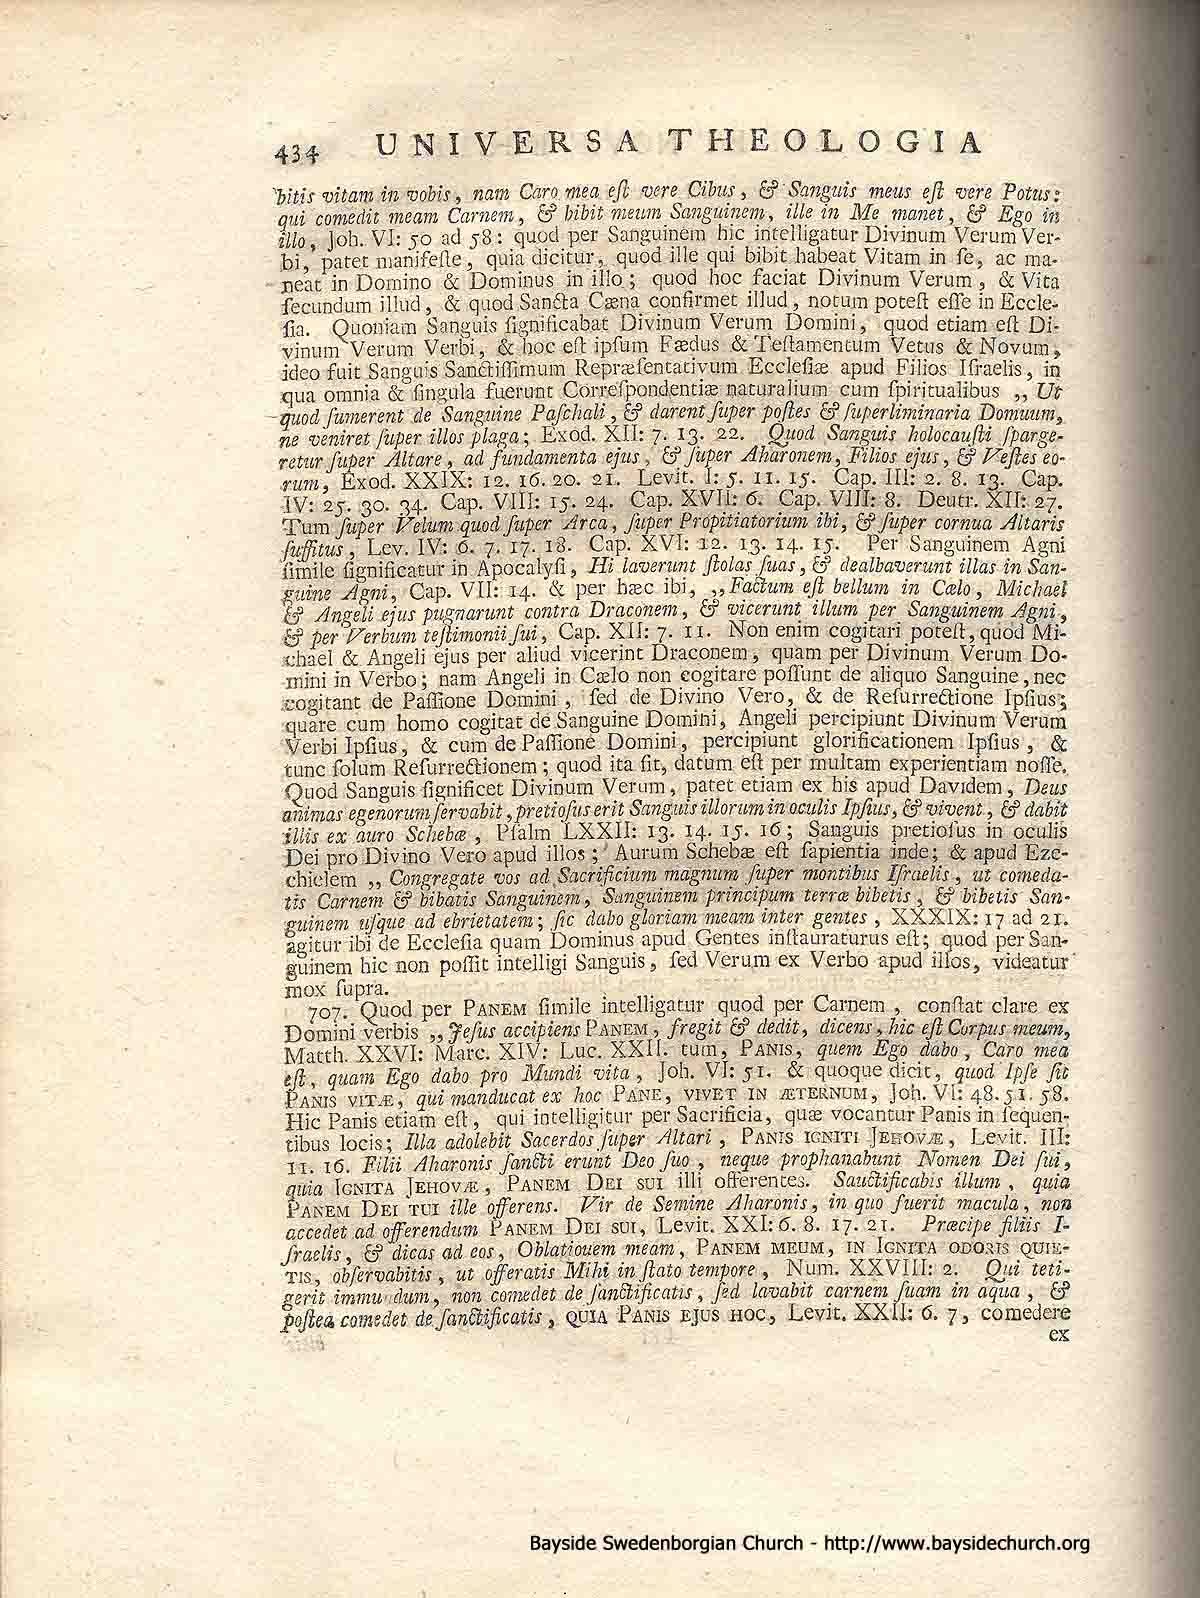 434 UNIVERSA THEOLOGIA
bitis vitam in vobis, nam Caro mea eſt vere Cibus, & Sanguis meus eſt vere Potus:
qui comedit meam Carnem, & bibit meum Sanguinem, ille in Me manet, & Ego in
illo, Joh. VI: 50 ad 58: quod per Sanguinem hic intelligatur Divinum Verum Ver-
bi, patet manifeſte, quia dicitur, quod ille qui bibit habeat Vitam in ſe, ac ma-
neat in Domino & Dominus in illo; quod hoc faciat Divinum Verum, & Vita
ſecundum illud, & quod Sancta Cæna confirmet illud, notum poteſt eſſe in Eccle-
ſia. Quoniam Sanguis ſignificabat Divinum Verum Domini, quod etiam eſt Di-
vinum Verum Verbi, & hoc eſt ipſum Fædus & Teſtamentum Vetus & Novum,
ideo fuit Sanguis Sanctiſſimum Repræſentativum Eccleſiæ apud Filios Iſraelis, in
qua omnia & ſingula fuerunt Correſpondentiæ naturalium cum ſpiritualibus „ Ut
quod ſumerent de Sanguine Paſchali, & darent ſuper poſtes & ſuperliminaria Domuum,
ne veniret ſuper illos plaga; Exod. XII: 7. 13. 22. Quod Sanguis holocauſti ſparge-
retur ſuper Altare, ad fundamenta ejus, & ſuper Aharonem, Filios ejus, & Veſtes eo-
rum, Exod. XXIX: 12. 16. 20. 21. Levit. I: 5. 11. 15. Cap. III: 2. 8. 13. Cap.
IV: 25. 30. 34. Cap. VIII: 15. 24. Cap. XVII: 6. Cap. VIII: 8. Deutr. XII: 27.
Tum ſuper Velum quod ſuper Arca, ſuper Propitiatorium ibi, & ſuper cornua Altaris
ſuffitus, Lev. IV: 6. 7. 17. 18. Cap. XVI: 12. 13. 14. 15. Per Sanguinem Agni
ſimile ſignificatur in Apocalyſi, Hi laverunt ſtolas ſuas, & dealbaverunt illas in San-
guine Agni, Cap. VII: 14. & per hæc ibi, „Factum eſt bellum in Cælo, Michael
& Angeli ejus pugnarunt contra Draconem, & vicerunt illum per Sanguinem Agni,
& per Verbum teſtimonii ſui, Cap. XII: 7. 11. Non enim cogitari poteſt, quod Mi-
chael & Angeli ejus per aliud vicerint Draconem, quam per Divinum Verum Do-
mini in Verbo; nam Angeli in Cælo non cogitare poſſunt de aliquo Sanguine, nec
cogitant de Paſſione Domini, ſed de Divino Vero, & de Reſurrectione Ipſius;
quare cum homo cogitat de Sanguine Domini, Angeli percipiunt Divinum Verum
Verbi Ipſius, & cum de Paſſione Domini, percipiunt glorificationem Ipſius, &
tunc ſolum Reſurrectionem; quod ita ſit, datum eſt per multam experientiam noſſe.
Quod Sanguis ſignificet Divinum Verum, patet etiam ex his apud Davidem, Deus
animas egenorum ſervabit, pretioſus erit Sanguis illorum in oculis Ipſius, & vivent, & dabit
illis ex auro Schebæ, Pſalm LXXII: 13. 14. 15. 16; Sanguis pretioſus in oculis
Dei pro Divino Vero apud illos; Aurum Schebæ eſt ſapientia inde; & apud Eze-
chielem „ Congregate vos ad Sacrificium magnum ſuper montibus Iſraelis, ut comeda-
tis Carnem & bibatis Sanguinem, Sanguinem principum terræ bibetis, & bibetis San-
guinem uſque ad ebrietatem; ſic dabo gloriam meam inter gentes, XXXIX: 17 ad 21.
agitur ibi de Eccleſia quam Dominus apud Gentes inſtauraturus eſt; quod per San-
guinem hic non poſſit intelligi Sanguis, ſed Verum ex Verbo apud illos, videatur
mox ſupra.
707. Quod per PANEM ſimile intelligatur quod per Carnem, conſtat clare ex
Domini verbis „Jeſus accipiens PANEM, fregit & dedit, dicens, hic eſt Corpus meum,
Matth. XXVI: Marc. XIV: Luc. XXII. tum, PANIS, quem Ego dabo, Caro mea
eſt, quam Ego dabo pro Mundi vita, Joh. VI: 51. & quoque dicit, quod Ipſe ſit
PANIS VITÆ, qui manducat ex hoc PANE, VIVET IN ÆTERNUM, Joh. VI: 48. 51. 58.
Hic Panis etiam eſt, qui intelligitur per Sacrificia, quæ vocantur Panis in ſequen-
tibus locis; Illa adolebit Sacerdos ſuper Altari, PANIS IGNITI JEHOVÆ, Levit. III:
11. 16. Filii Aharonis ſancti erunt Deo ſuo, neque prophanabunt Nomen Dei ſui,
quia IGNITA JEHOVÆ, PANEM DEI SUI illi offerentes. Sauctificabis illum, quia
PANEM DEI TUI ille offerens. Vir de Semine Aharonis, in quo fuerit macula, non
accedet ad offerendum PANEM DEI SUI, Levit. XXI: 6. 8. 17. 21. Præcipe filiis I-
ſraelis, & dicas ad eos, Oblatiouem meam, PANEM MEUM, IN IGNITA ODORIS QUIE-
TIS, obſervabitis, ut offeratis Mihi in ſtato tempore, Num. XXVIII: 2. Qui teti-
gerit immundum, non comedet de ſanctificatis, ſed lavabit carnem ſuam in aqua, &
poſtea comedet de ſanctificatis, QUIA PANIS EJUS HOC, Levit. XXII: 6. 7, comedere
ex
Bayside Swedenborgian Church - http://www.baysidechurch.org